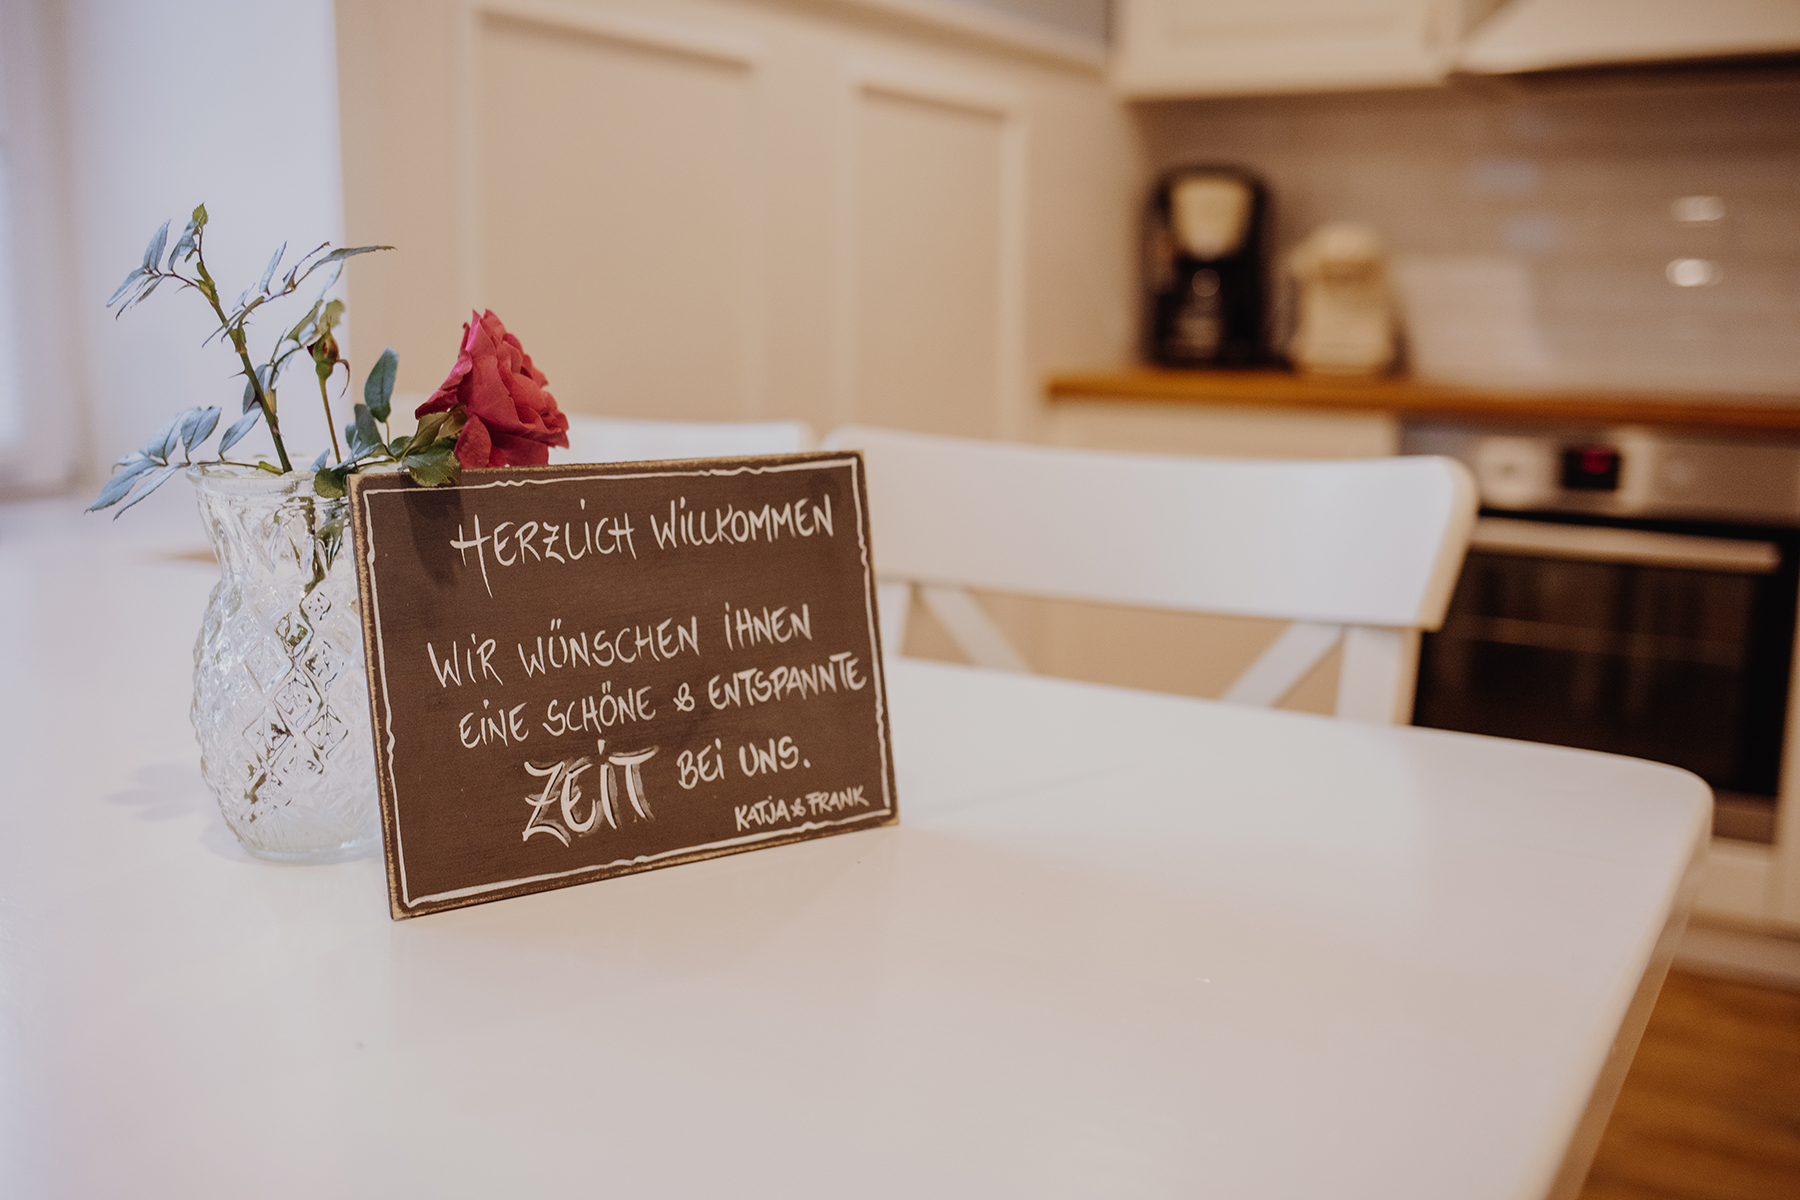 HERZLICH WILLKOMMEN
WIR WÜNSCHEN IHNEN
EINE SCHÖNE & ENTSPANNTE
ZEIT BEI UNS.
KATJA & FRANK